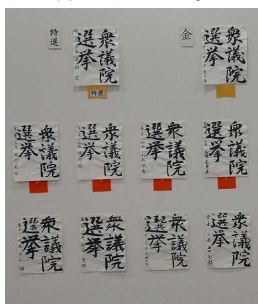 特選
衆議院
選挙
特選
金
衆議院
選挙
衆議院
選挙
衆議院
選挙
衆議院
選挙
衆議院
選挙
衆議院
選挙
衆議院
選挙
衆議院
選挙
衆議院
選挙